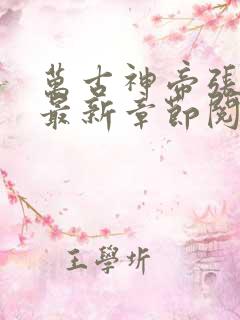 萬古神帝張
最新章節閱
王學圻